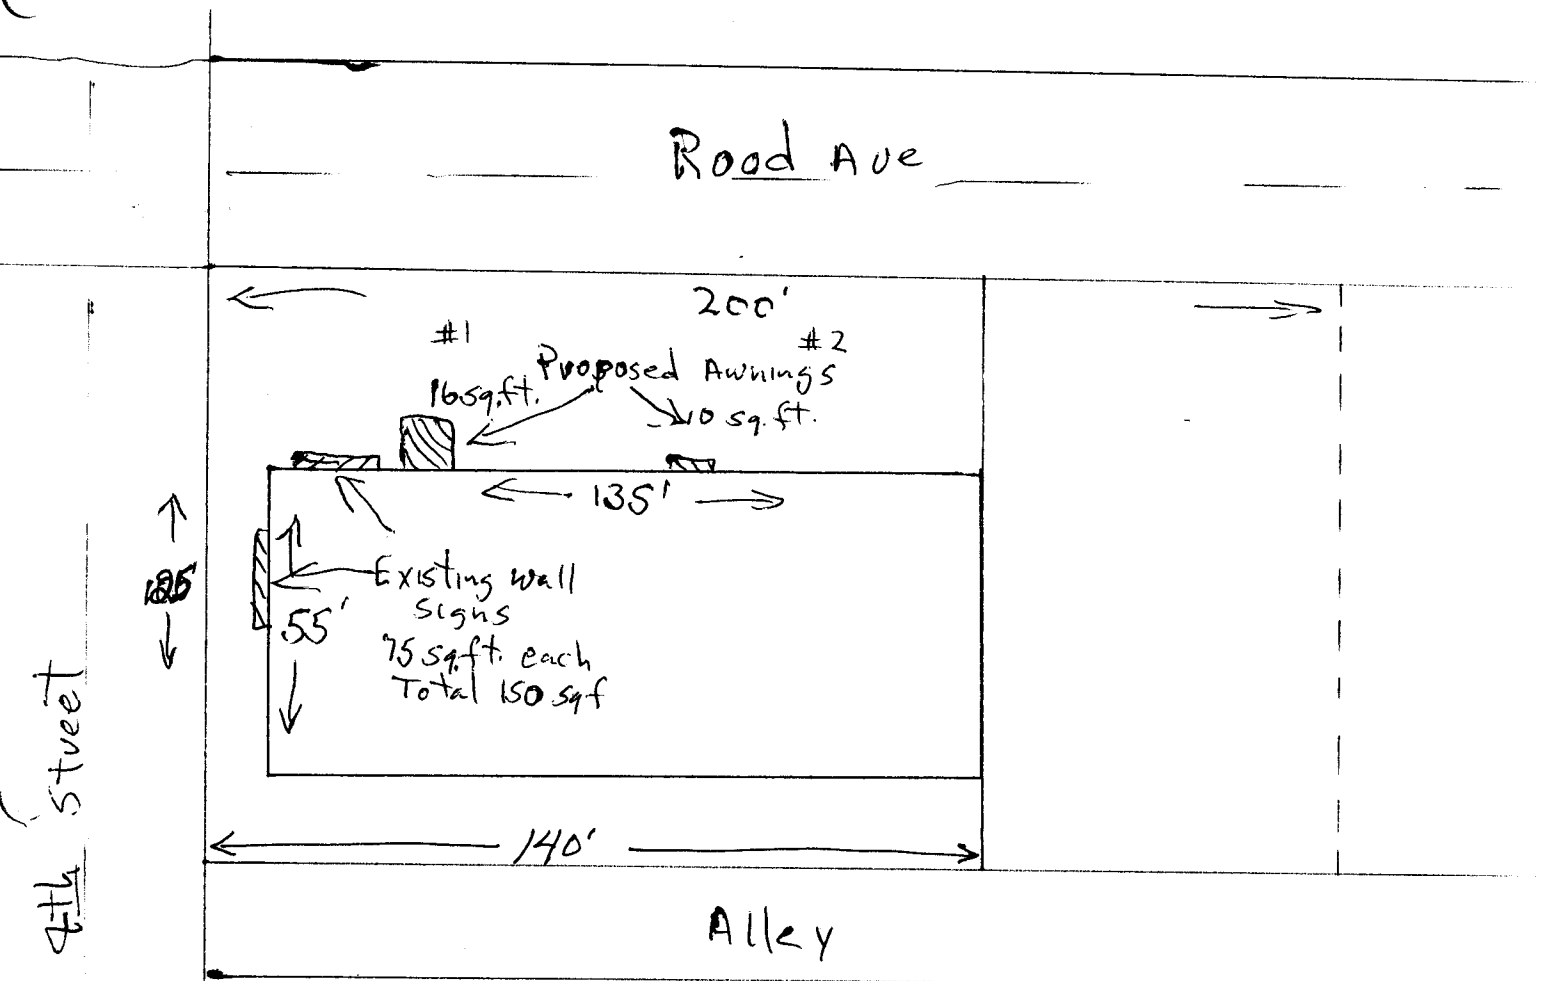 Rood Ave
200'
#1
#2
Proposed Awnings
16 sq.ft.
10 sq.ft.
135'
125'
Existing wall
signs
75 sq.ft. each
Total 150 sqf
55'
4th Street
140'
Alley